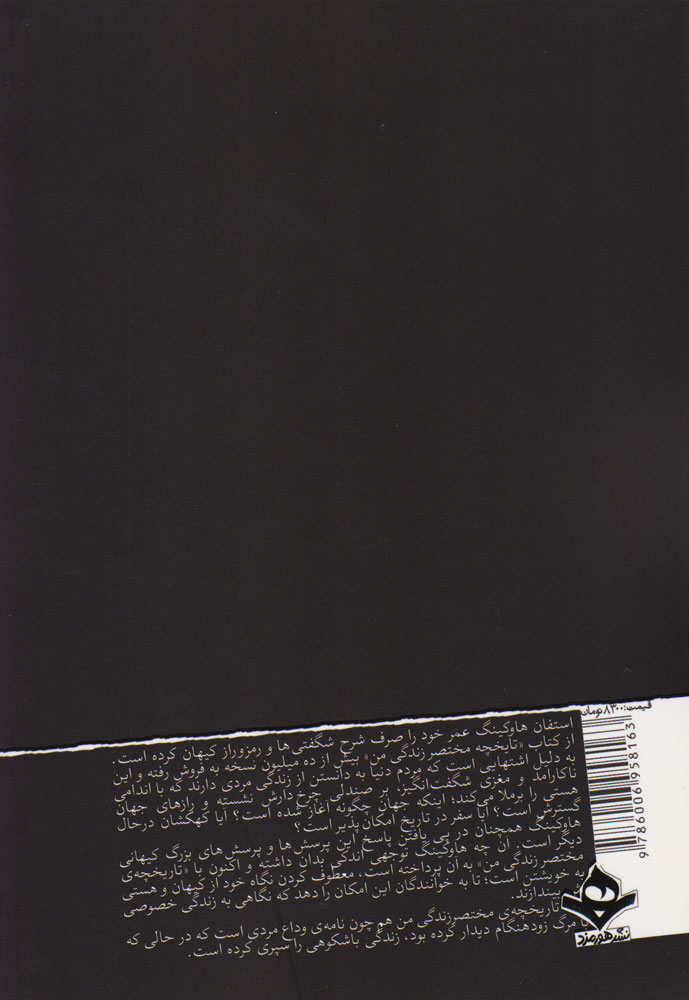 قیمت: ۸۳۰۰ تومان
استفان هاوکینگ عمر خود را صرف شرح شگفتی ها و رمزوراز کیهان کرده است.
از کتاب «تایخچه مختصر زندگی من» بیش از ده میلیون نسخه به فروش رفته و این
به دلیل اشتهایی است که مردم دنیا به دانستن از زندگی مردی دارند که با اندامی
ناکارامد و مغزی شگفت‌انگیز بر صندلی چرخ‌دارش نشسته و رازهای جهان
هستی را برملا می‌کند؛ اینکه جهان چگونه آغاز شده است؟ آیا کهکشان درحال
گسترش است؟ آیا سفر در تاریخ امکان‌پذیر است؟
هاوکینگ همچنان در پی یافتن پاسخ این پرسش ها و پرسش های بزرگ کیهانی
دیگر است. آن چه هاوکینگ توجهی اندکی بدان داشته و اکنون با «تاریخچه‌ی
مختصر زندگی من» به آن پرداخته است، معطوف کردن نگاه خود از کیهان و هستی
به خویشتن است؛ تا به خوانندگان این امکان را دهد که نگاهی به زندگی خصوصی
بیندازند.
تاریخچه‌ی مختصرزندگی من هم‌چون نامه‌ی وداع مردی است که در حالی که
با مرگ زودهنگام دیدار کرده بود، زندگی باشکوهی را سپری کرده است.
9 786006 958163
نشر هورمزد